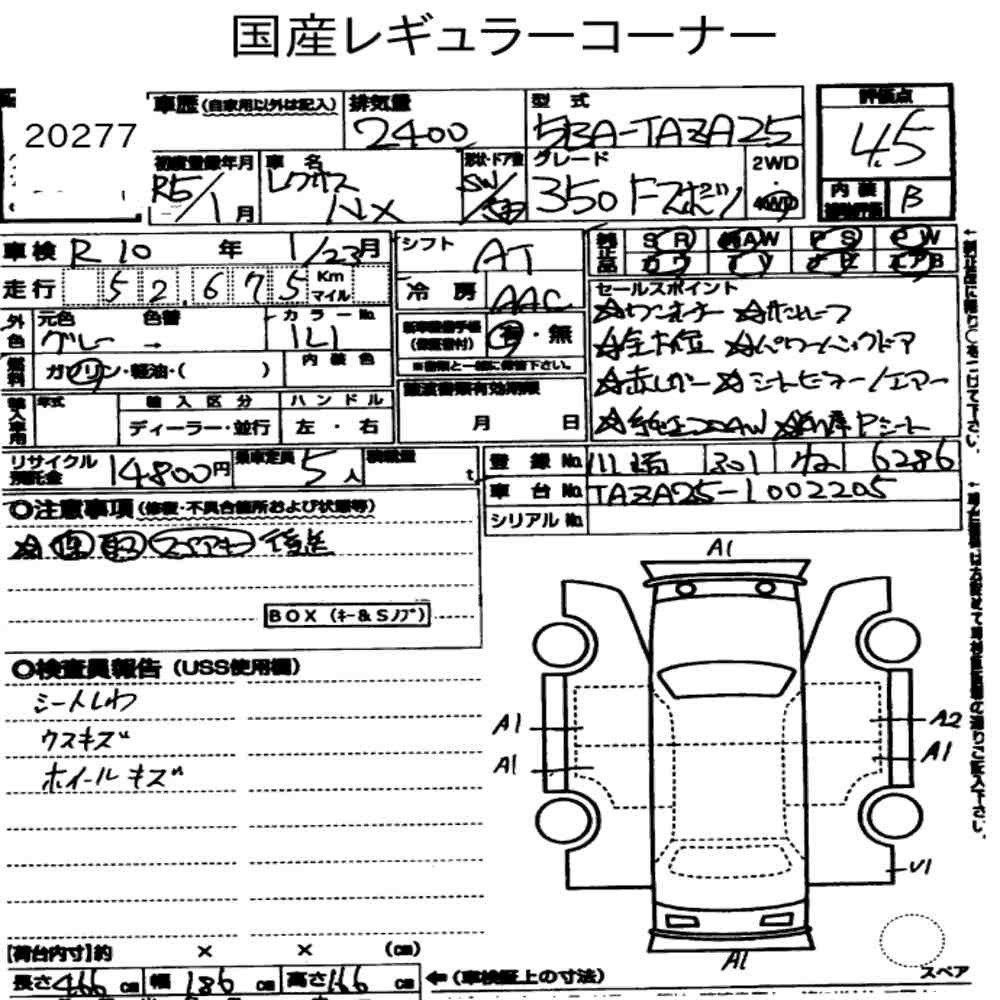 国産レギュラーコーナー
20277
車歴（自家用以外は記入）
排気量
2400
型式
5BA-TAZA25
評価点
4.5
初度登録年月
R5/1月
車名
レクサス
NX
形状・ドア数
SW/5D
グレード
350 Fスポーツ
2WD
・
4WD
内装
補助評価
B
車検 R10年 1/23月
走行 52,675 Km マイル
シフト AT
冷房 AAC
純正品
SR 純AW PS PW
カワ TV ナビ エアB
外色
元色 色替 カラーNo.
グレー → 1L1
燃料
ガソリン・軽油・( )
内装色
新車整備手帳
（保証書付） 有・無
※書類と一緒に保管下さい。
譲渡書類有効期限
月 日
セールスポイント
☆ワンオーナー ☆パノラマルーフ
☆全方位 ☆パワーバックドア
☆赤レザー ☆シートヒーター/エアー
☆純正20AW ☆Pシート
輸入車用
年式 輸入区分 ハンドル
ディーラー・並行 左・右
リサイクル
預託金 14800円
乗車定員 5人
積載量 t
登録No. 川崎 301 ね 6286
車台No. TAZA25-1002205
シリアルNo.
○注意事項（修復・不具合箇所および状態等）
☆ 保 取 スペアキー 後送
BOX（キー&Sノブ）
○検査員報告（USS使用欄）
シートしわ
ウスキズ
ホイールキズ
A1
A1
A2
A1
A1
U1
A1
スペア
[荷台内寸]約 × × (cm)
長さ 466 cm 幅 186 cm 高さ 166 cm
←（車検証上の寸法）